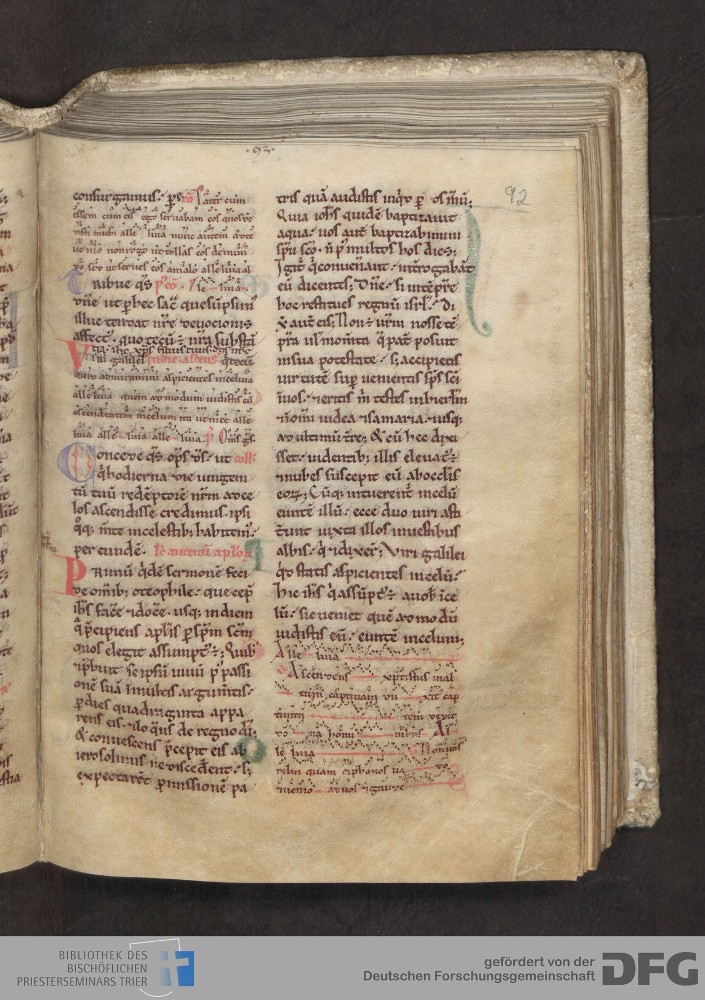 ·93·
92
consurgamus. p
Pat cum
essem cum eis ego seruabam eos quos de
disti michi alleluia nunc autem ad te
uenio non rogo ut tollas eos de mun
do sed ut serues eos a malo alleluia al
Tribue qs
dne ut p hec sac que sumpsim
illuc tendat nre deuocionis
affect quo tecu e nra substa
Viri galilei
quid admiramini aspicientes in celum
alleluia quem ad modum uidistis eu
ascendentem in celum ita ueniet alle
luia alle luia alle luia.
Concede qs ops ds ut
q hodierna die unigeni
tu tuu redeptore nrm ad ce
los ascendisse credimus. ipsi
qq mte in celestib habitem
per eunde.
Primu qde sermone feci
de omib o teophile que cep
ihs face & doce usq in diem
q pcipiens aplis p spm scm
quos elegit assumpt e. Quib
& pbuit se ipsu uiuu p passi
one sua in multis argumtis
p dies quadraginta appa
rens eis. & loqns de regno di
& conuescens pcepit eis ab
ierosolimis ne discedent. s
expectaret pmissione pa
tris qua audistis inqt p os mu;
Quia iohs quide baptizauit
aqua. uos aut baptizabimini
spu sco n p multos hos dies;
Igit q conuenant. interrogabat
eu dicentes; Dne si in tepre
hoc restitues regnu isrl. Di
x aut eis; Non e urm nosse te
pra ul momta q pat posuit
in sua potestate. s; accipietis
uirtute supueniens sps sci
in uos. & eritis m testes in ihrlm
& i omi iudea & samaria & usq
ad ultimu tre; & cu hec dix
isset. uidentib illis eleuat e.
& nubes suscepit eu ab oculis
eor; Cuq intuerent in celu
eunte illu. ecce duo uiri asti
terunt iuxta illos in uestibus
albis. q & dixer; Viri galilei
qd statis aspicientes in celu.
hic ihs q assupt e a uob ice
lu. sic ueniet que ad modu
uidistis eu eunte in celum;
Alle luia
Ascendens xpistus in al
tum captiuam du xit cap
tiuitatem dedit
do na homi nibus Al
le luia Non uos
relin quam orphanos ua do
& uenio ad uos & gaude
BIBLIOTHEK DES
BISCHÖFLICHEN
PRIESTERSEMINARS TRIER
gefördert von der
Deutschen Forschungsgemeinschaft
DFG